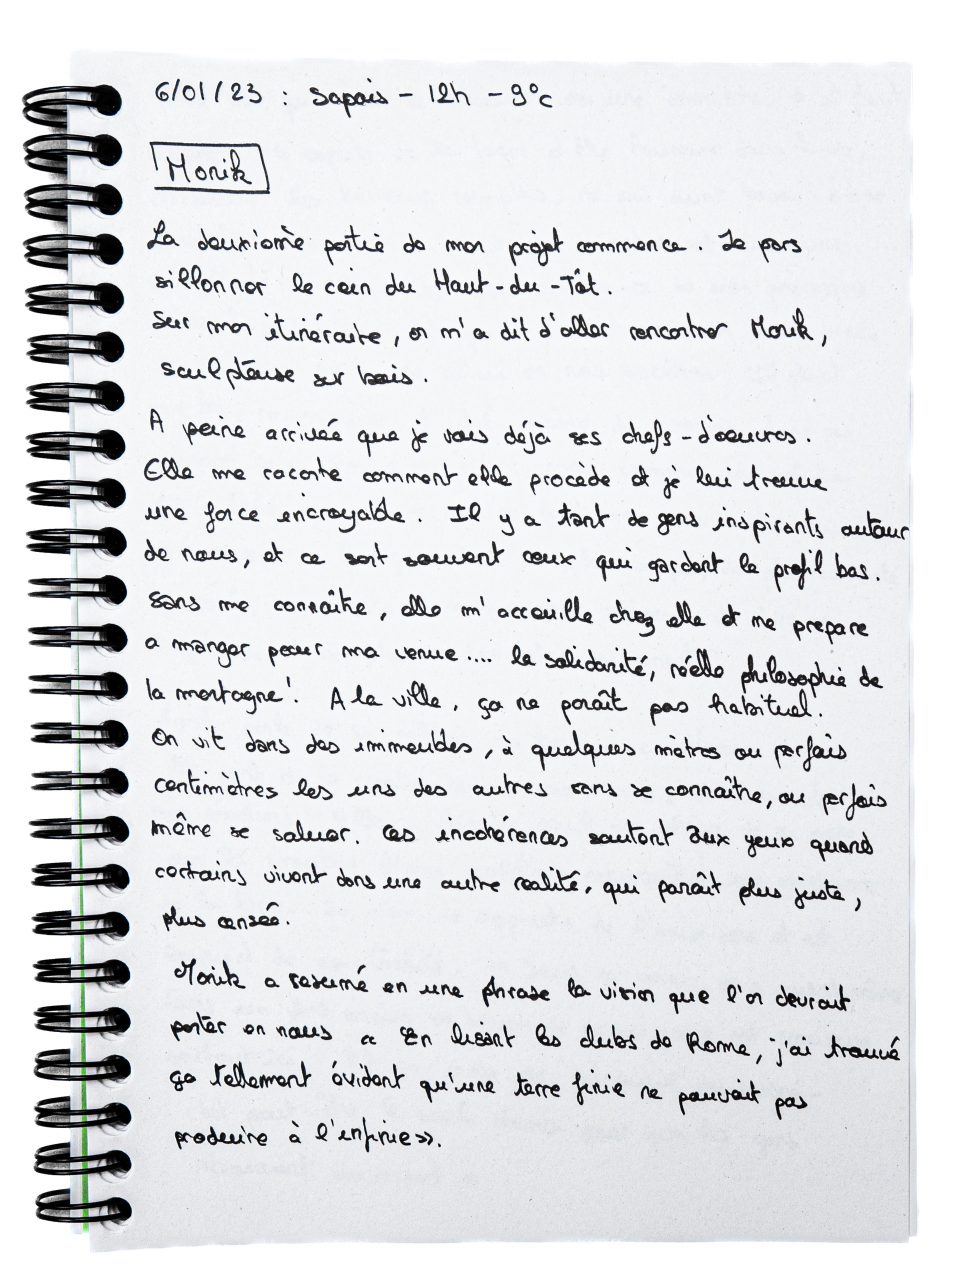 6/01/23 : Sapois - 12h - 9°c
Monik
La deuxième partie de mon projet commence. Je pars
sillonner le coin du Haut-du-Tôt.
Sur mon itinéraire, on m'a dit d'aller rencontrer Monik,
sculpteuse sur bois.
A peine arrivée que je vois déjà ses chefs-d'oeuvres.
Elle me raconte comment elle procède et je lui trouve
une force incroyable. Il y a tant de gens inspirants autour
de nous, et ce sont souvent ceux qui gardent le profil bas.
Sans me connaître, elle m'accueille chez elle et me prepare
a manger pour ma venue.... la solidarité, réelle philosophie de
la montagne! A la ville, ça ne paraît pas habituel.
On vit dans des immeubles, à quelques mètres ou parfois
centimètres les uns des autres sans se connaître, ou parfois
même se saluer. Ces incohérences sautent aux yeux quand
certains vivent dans une autre réalité, qui paraît plus juste,
plus censée.
Monik a resumé en une phrase la vision que l'on devrait
porter en nous « En lisant les clubs de Rome, j'ai trouvé
ça tellement évident qu'une terre finie ne pouvait pas
produire à l'infinie».